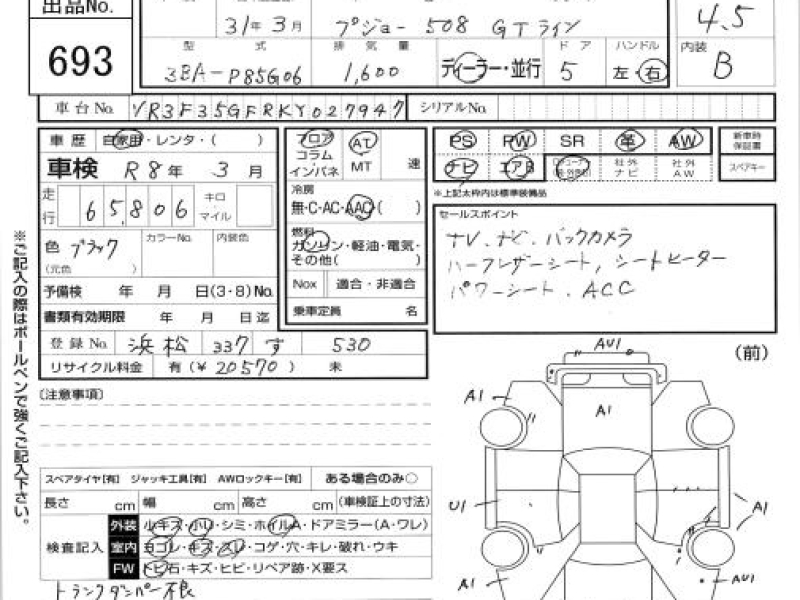 出品No.
693
31年 3月 プジョー 508 GTライン
4.5
型式 排気量 ドア ハンドル 内装
3BA-P85G06 1,600 ディーラー・並行 5 左・右 B
車台No. VR3F35GFRKY027947 シリアルNo.
車歴 自家用・レンタ・( )
車検 R8年 3月
走行 65,806 キロ マイル
色 ブラック カラーNo. 内装色
(元色 )
予備検 年 月 日(3・8)No.
書類有効期限 年 月 日迄
登録No. 浜松 337 す 530
リサイクル料金 有(¥20570) 未
フロア コラム インパネ
AT MT 速
冷房
無・C・AC・AAC( )
燃料
ガソリン・軽油・電気・
その他( )
Nox 適合・非適合
乗車定員 名
PS PW SR 革 AW 新車時保証書
ナビ エアB 社外ナビ 社外AW スペアキー
※上記太枠内は標準装備品
セールスポイント
TV.ナビ.バックカメラ
ハーフレザーシート,シートヒーター
パワーシート.ACC
※ご記入の際はボールペンで強くご記入下さい。
〔注意事項〕
スペアタイヤ[有] ジャッキ工具[有] AWロックキー[有] ある場合のみ○
長さ cm 幅 cm 高さ cm (車検証上の寸法)
検査記入
外装 小キズ・小凹・シミ・ホイルA・ドアミラー(A・ワレ)
室内 ヨゴレ・キズ・スレ・コゲ・穴・キレ・破れ・ウキ
FW トビ石・キズ・ヒビ・リペア跡・X要ス
トランクダンパー不良
(前)
AU1
A1
A1
U1
A1
A1
AU1